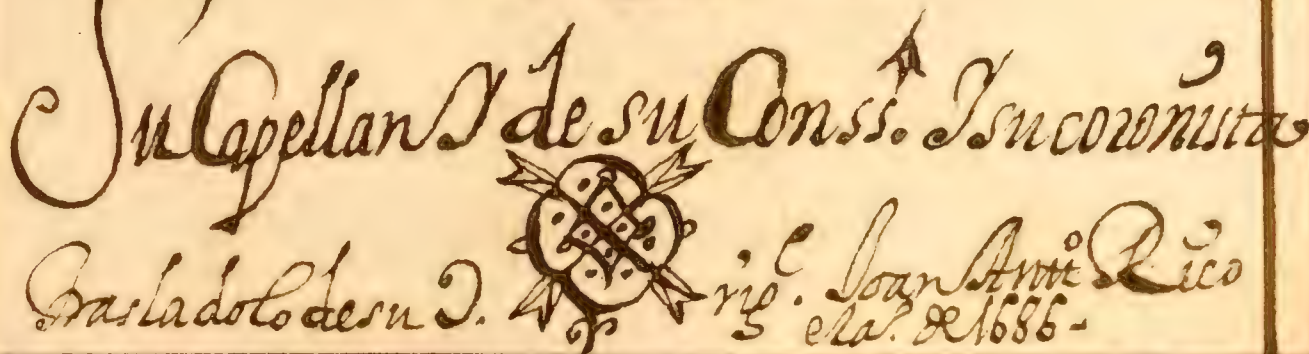 Su Capellan Y de su Conss.º Y su coronista
Trasladolo de su O. rigˡ. Joan Antº Rico
en aº. de 1686-